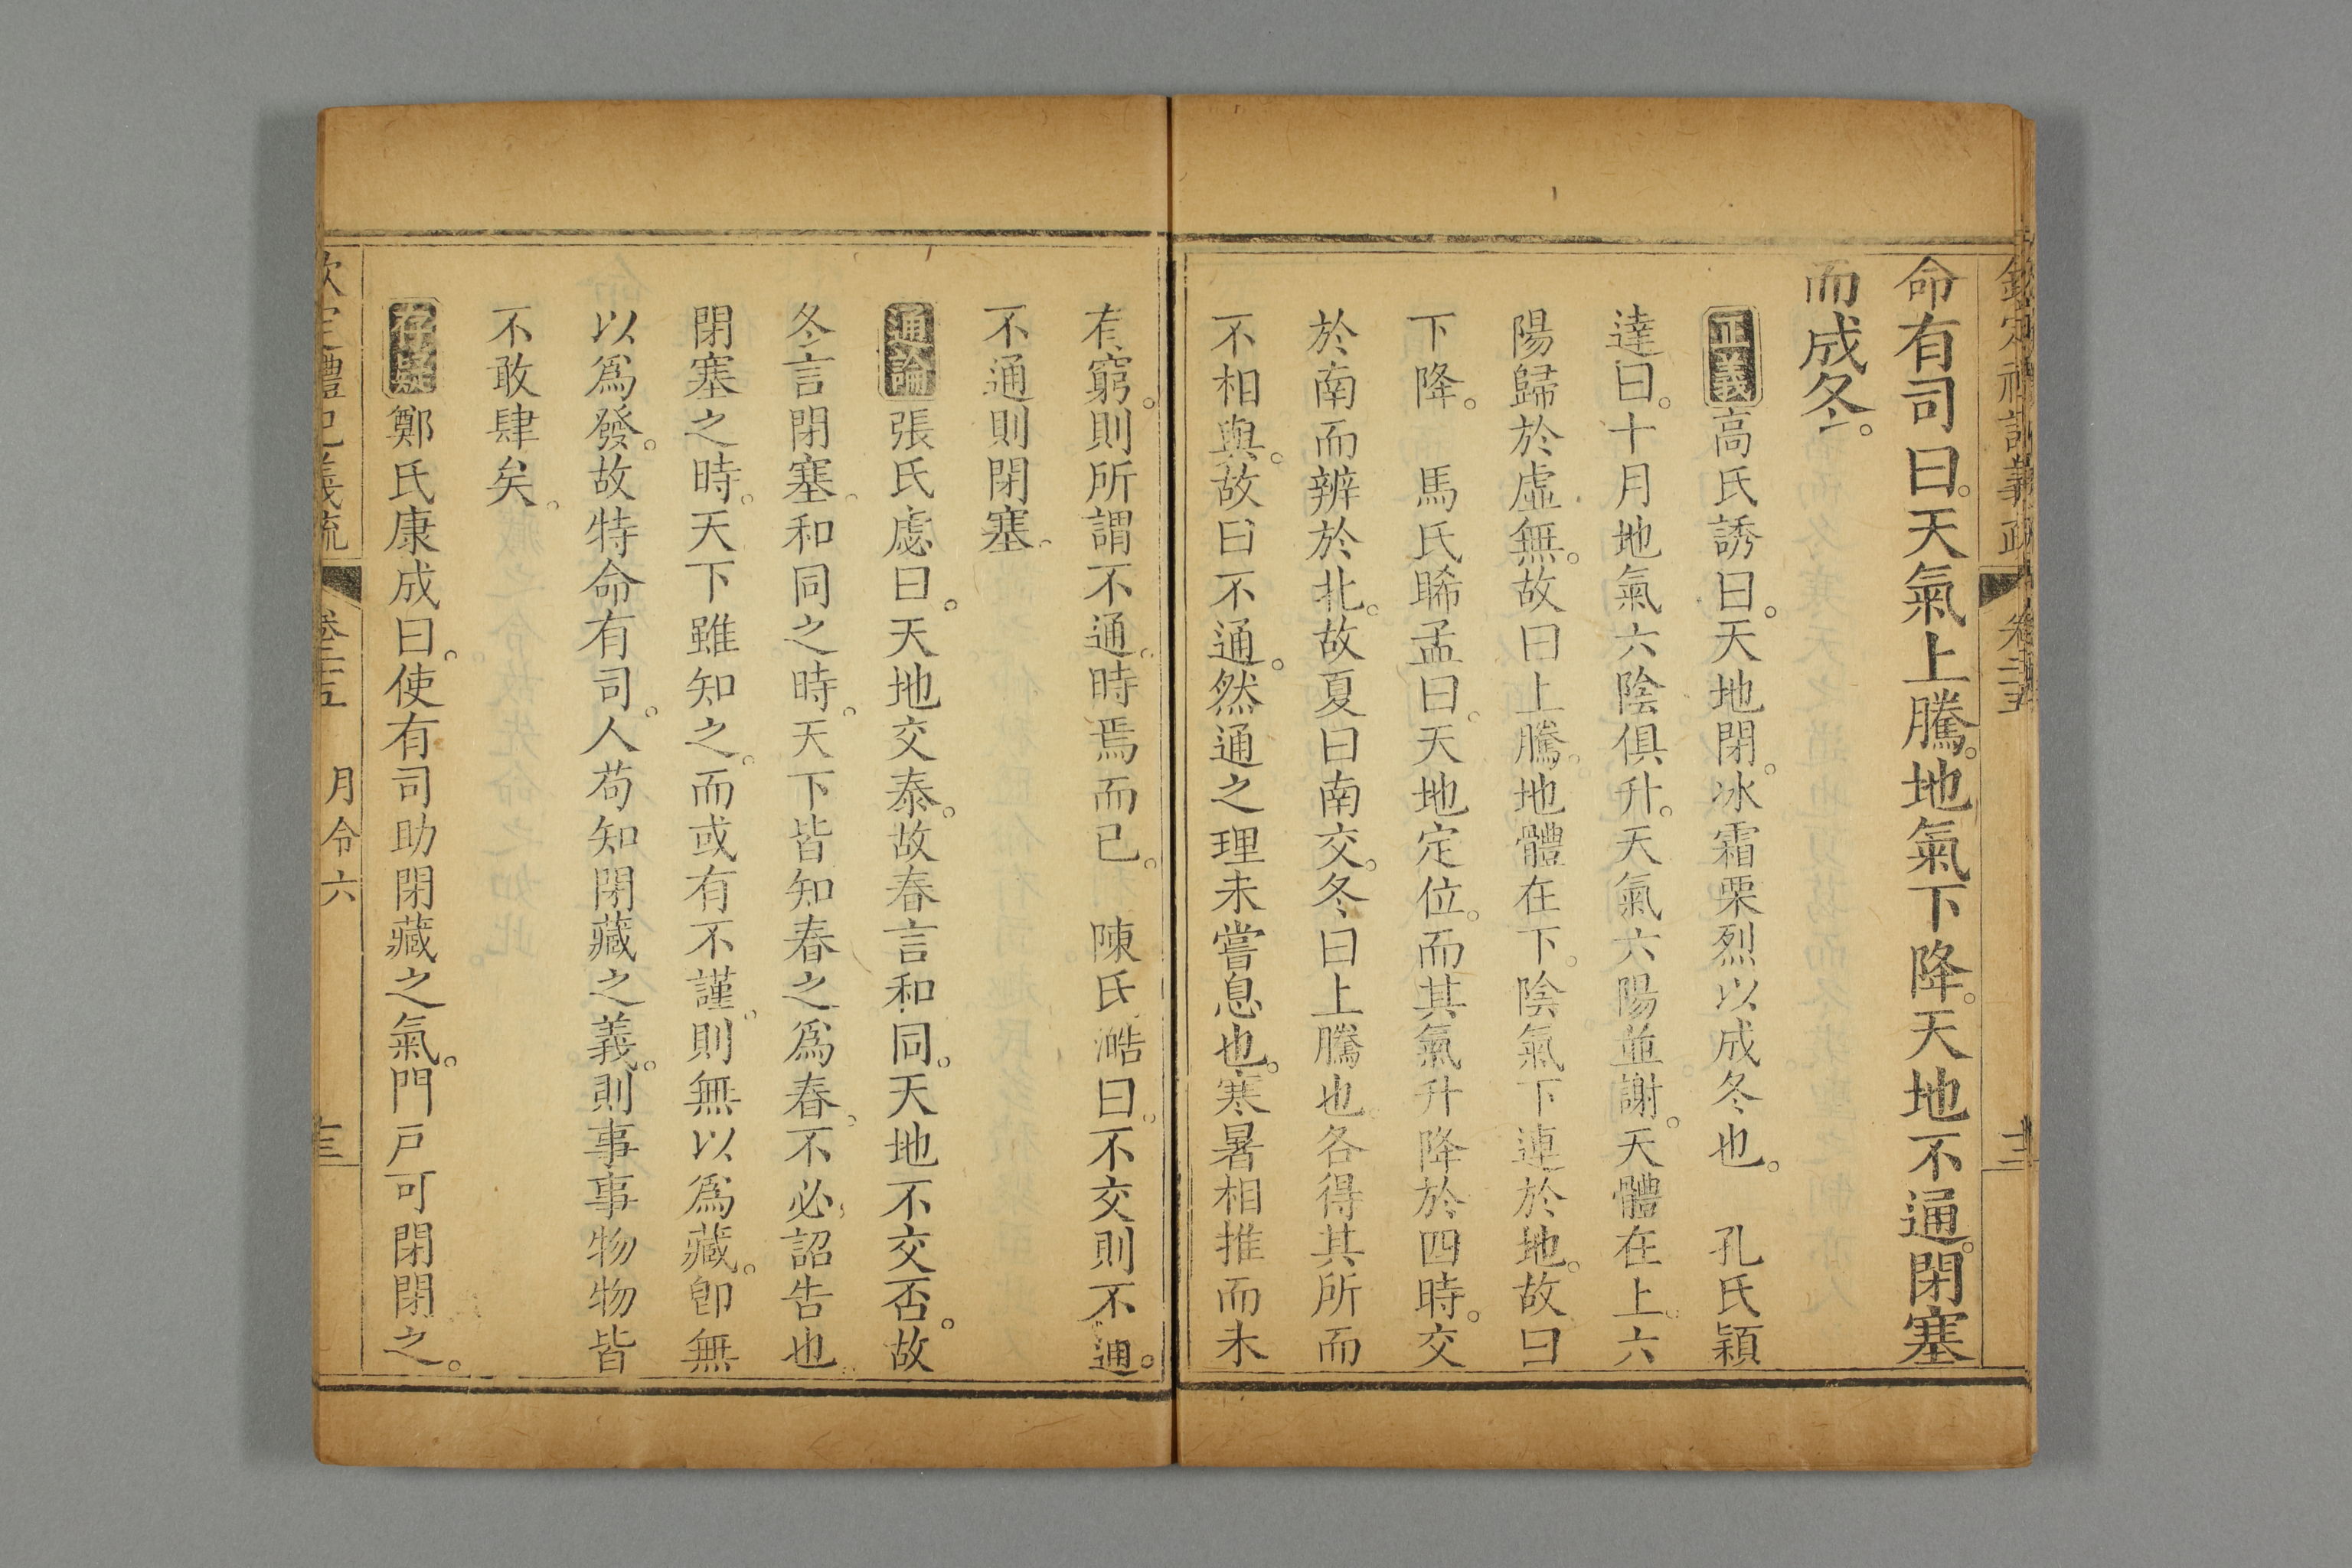 命有司曰。天氣上騰。地氣下降。天地不通。閉塞
而成冬。
正義高氏誘曰。天地閉。冰霜栗烈以成冬也。 孔氏穎
達曰。十月地氣六陰俱升。天氣六陽並謝。天體在上。六
陽歸於虛無。故曰上騰。地體在下。陰氣下連於地。故曰
下降。 馬氏晞孟曰。天地定位。而其氣升降於四時。交
於南而辨於北。故夏曰南交。冬曰上騰也。各得其所而
不相與。故曰不通。然通之理未嘗息也。寒暑相推而未
有窮。則所謂不通。時焉而已。 陳氏澔曰。不交則不通。
不通則閉塞。
通論張氏慮曰。天地交泰。故春言和同。天地不交否。故
冬言閉塞。和同之時。天下皆知春之為春。不必詔告也。
閉塞之時。天下雖知之。而或有不謹。則無以為藏。卽無
以為發。故特命有司。人苟知閉藏之義。則事事物物皆
不敢肆矣。
存疑鄭氏康成曰。使有司助閉藏之氣。門戸可閉閉之。
月令六